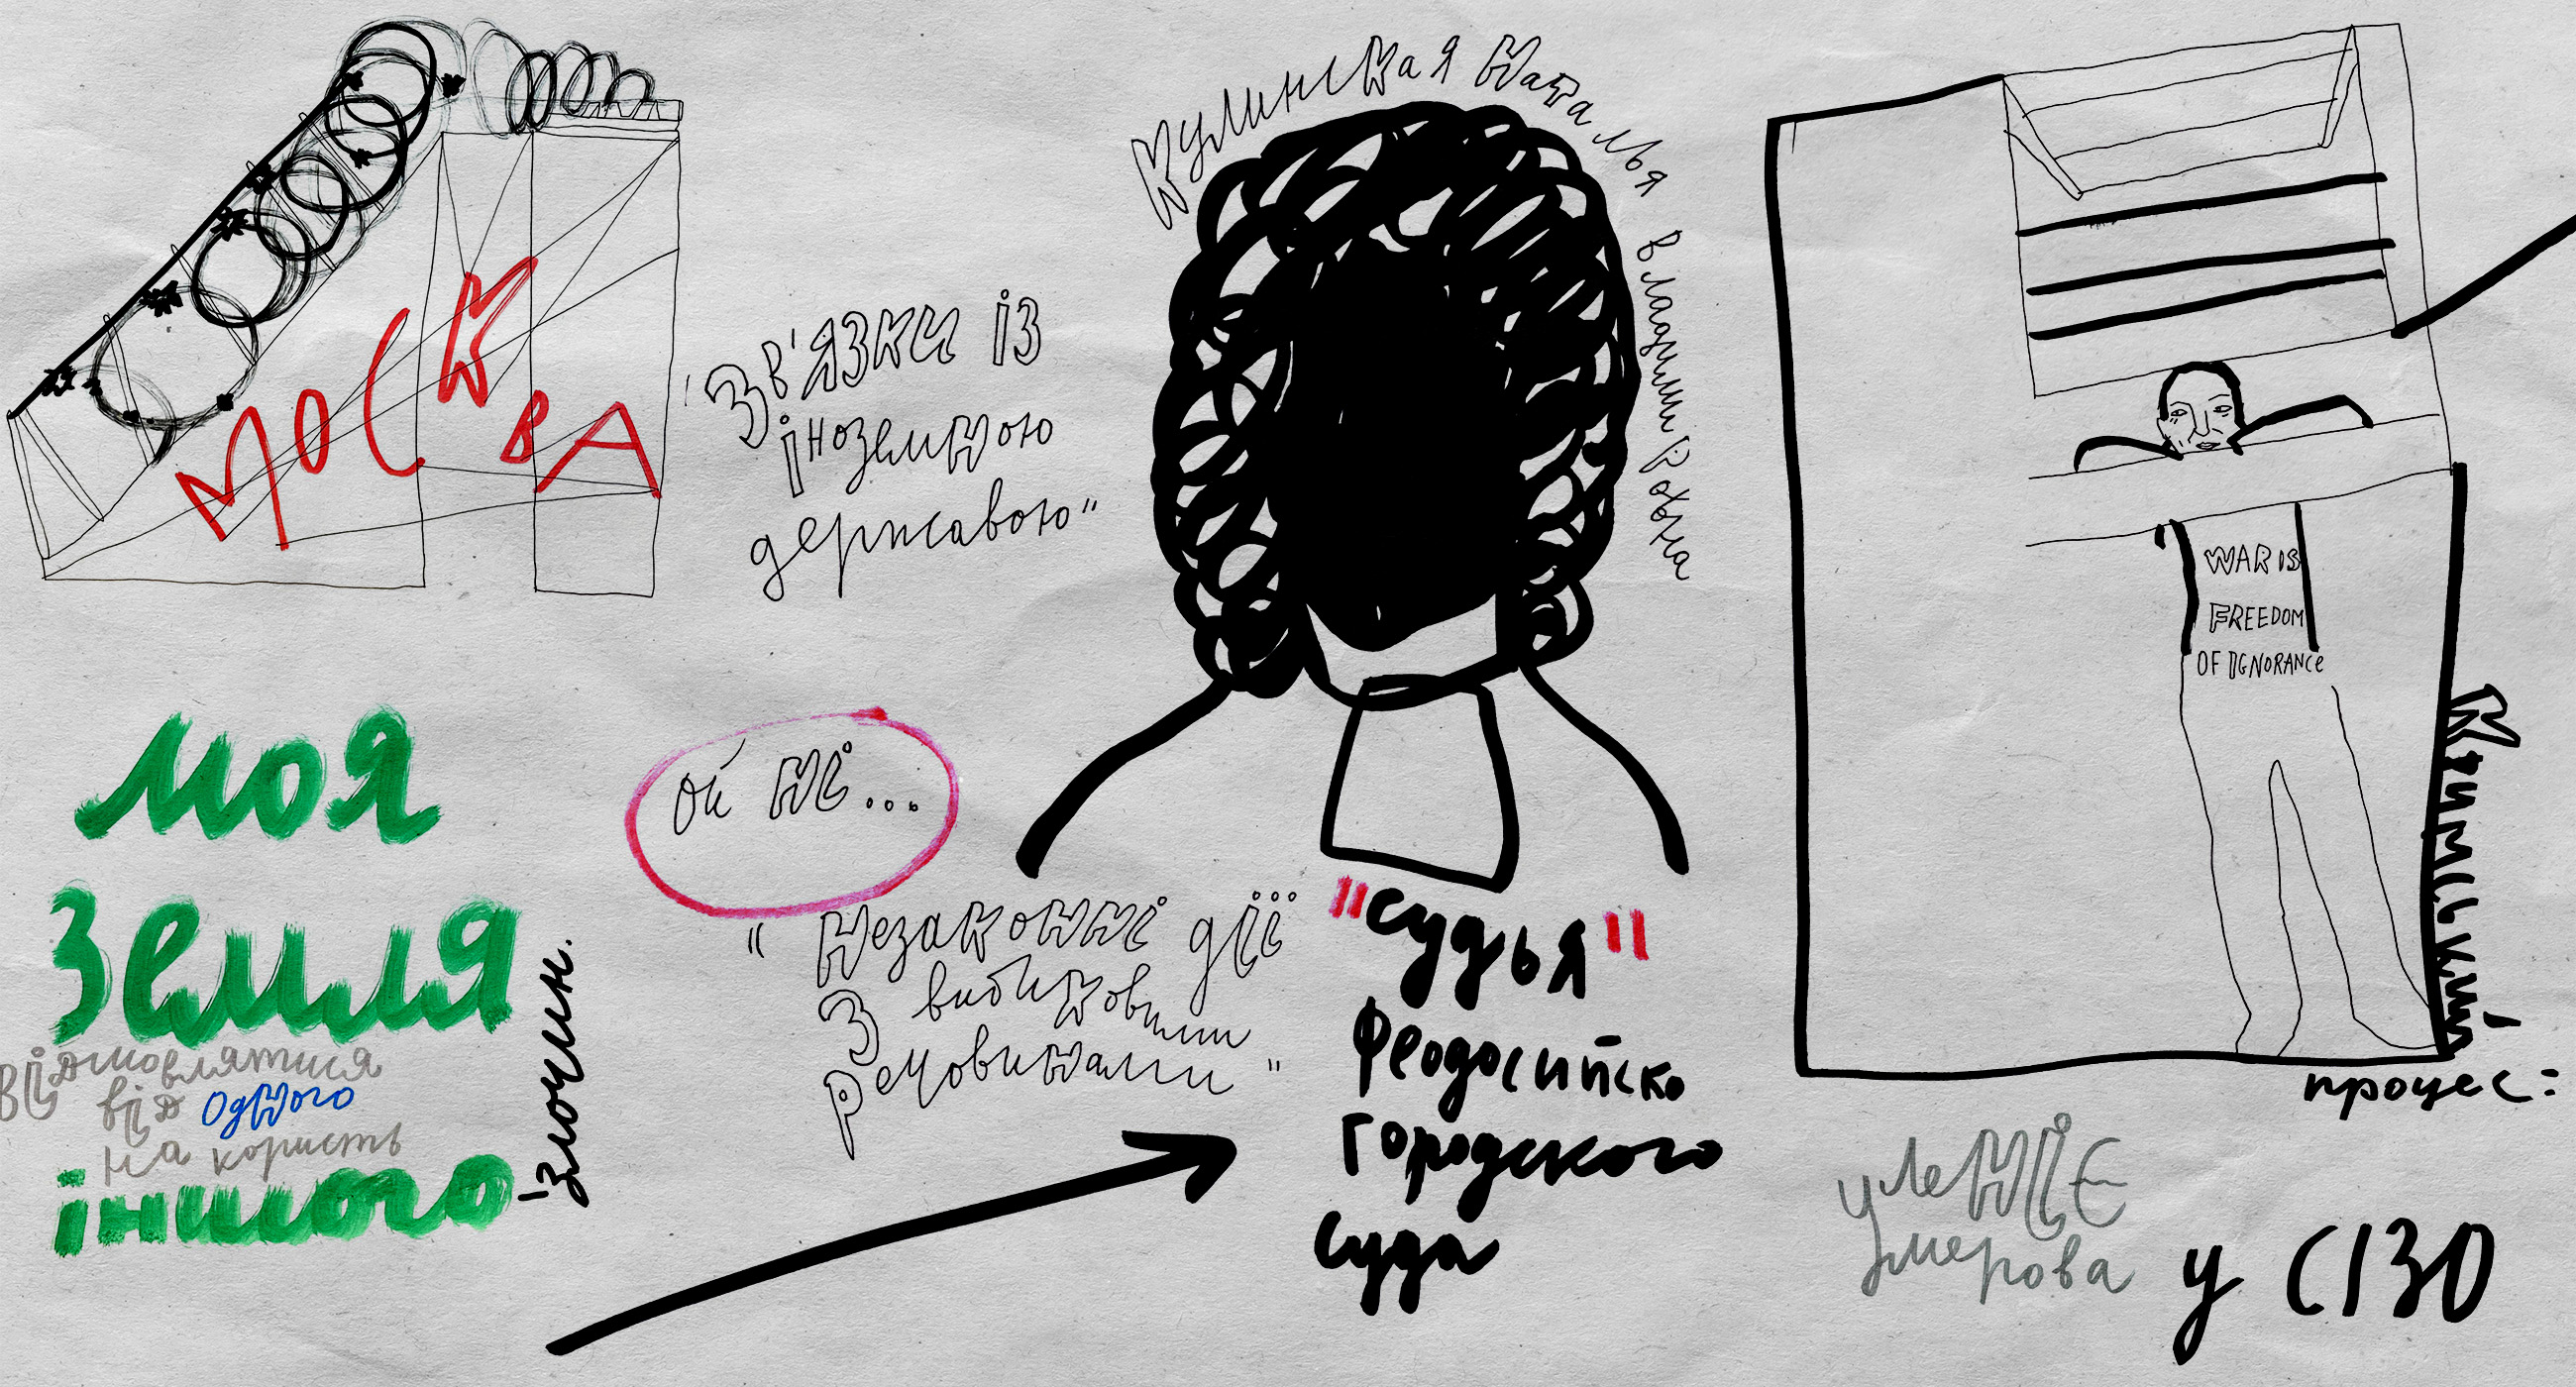 МОСКВА
"Зв'язки із
іноземною
державою"
Кулинская Наталья Владимировна
WAR IS
FREEDOM
OF IGNORANCE
ой ні...
моя
земля
відмовлятися
від одного
на користь
іншого
Злочин.
"Незаконні дії
з вибуховими
речовинами"
"судья"
Феодосийско
городского
суда
Кримський
процес:
Леніє
Умерова
у СІЗО